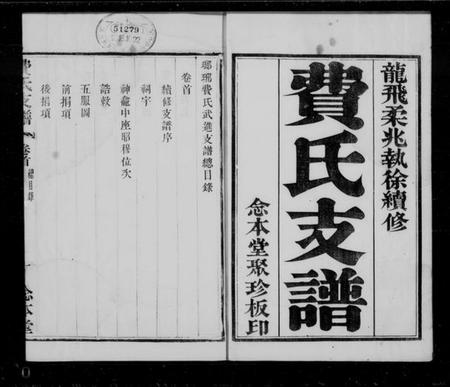 龍飛柔兆執徐續修
費氏支譜
念本堂聚珍板印
51279
瑯琊費氏武進支譜總目錄
卷首
續修支譜序
祠宇
神龕中座昭穆位次
誥敕
五服圖
前捐項
後捐項
費氏支譜 卷首 總目錄
一 念本堂